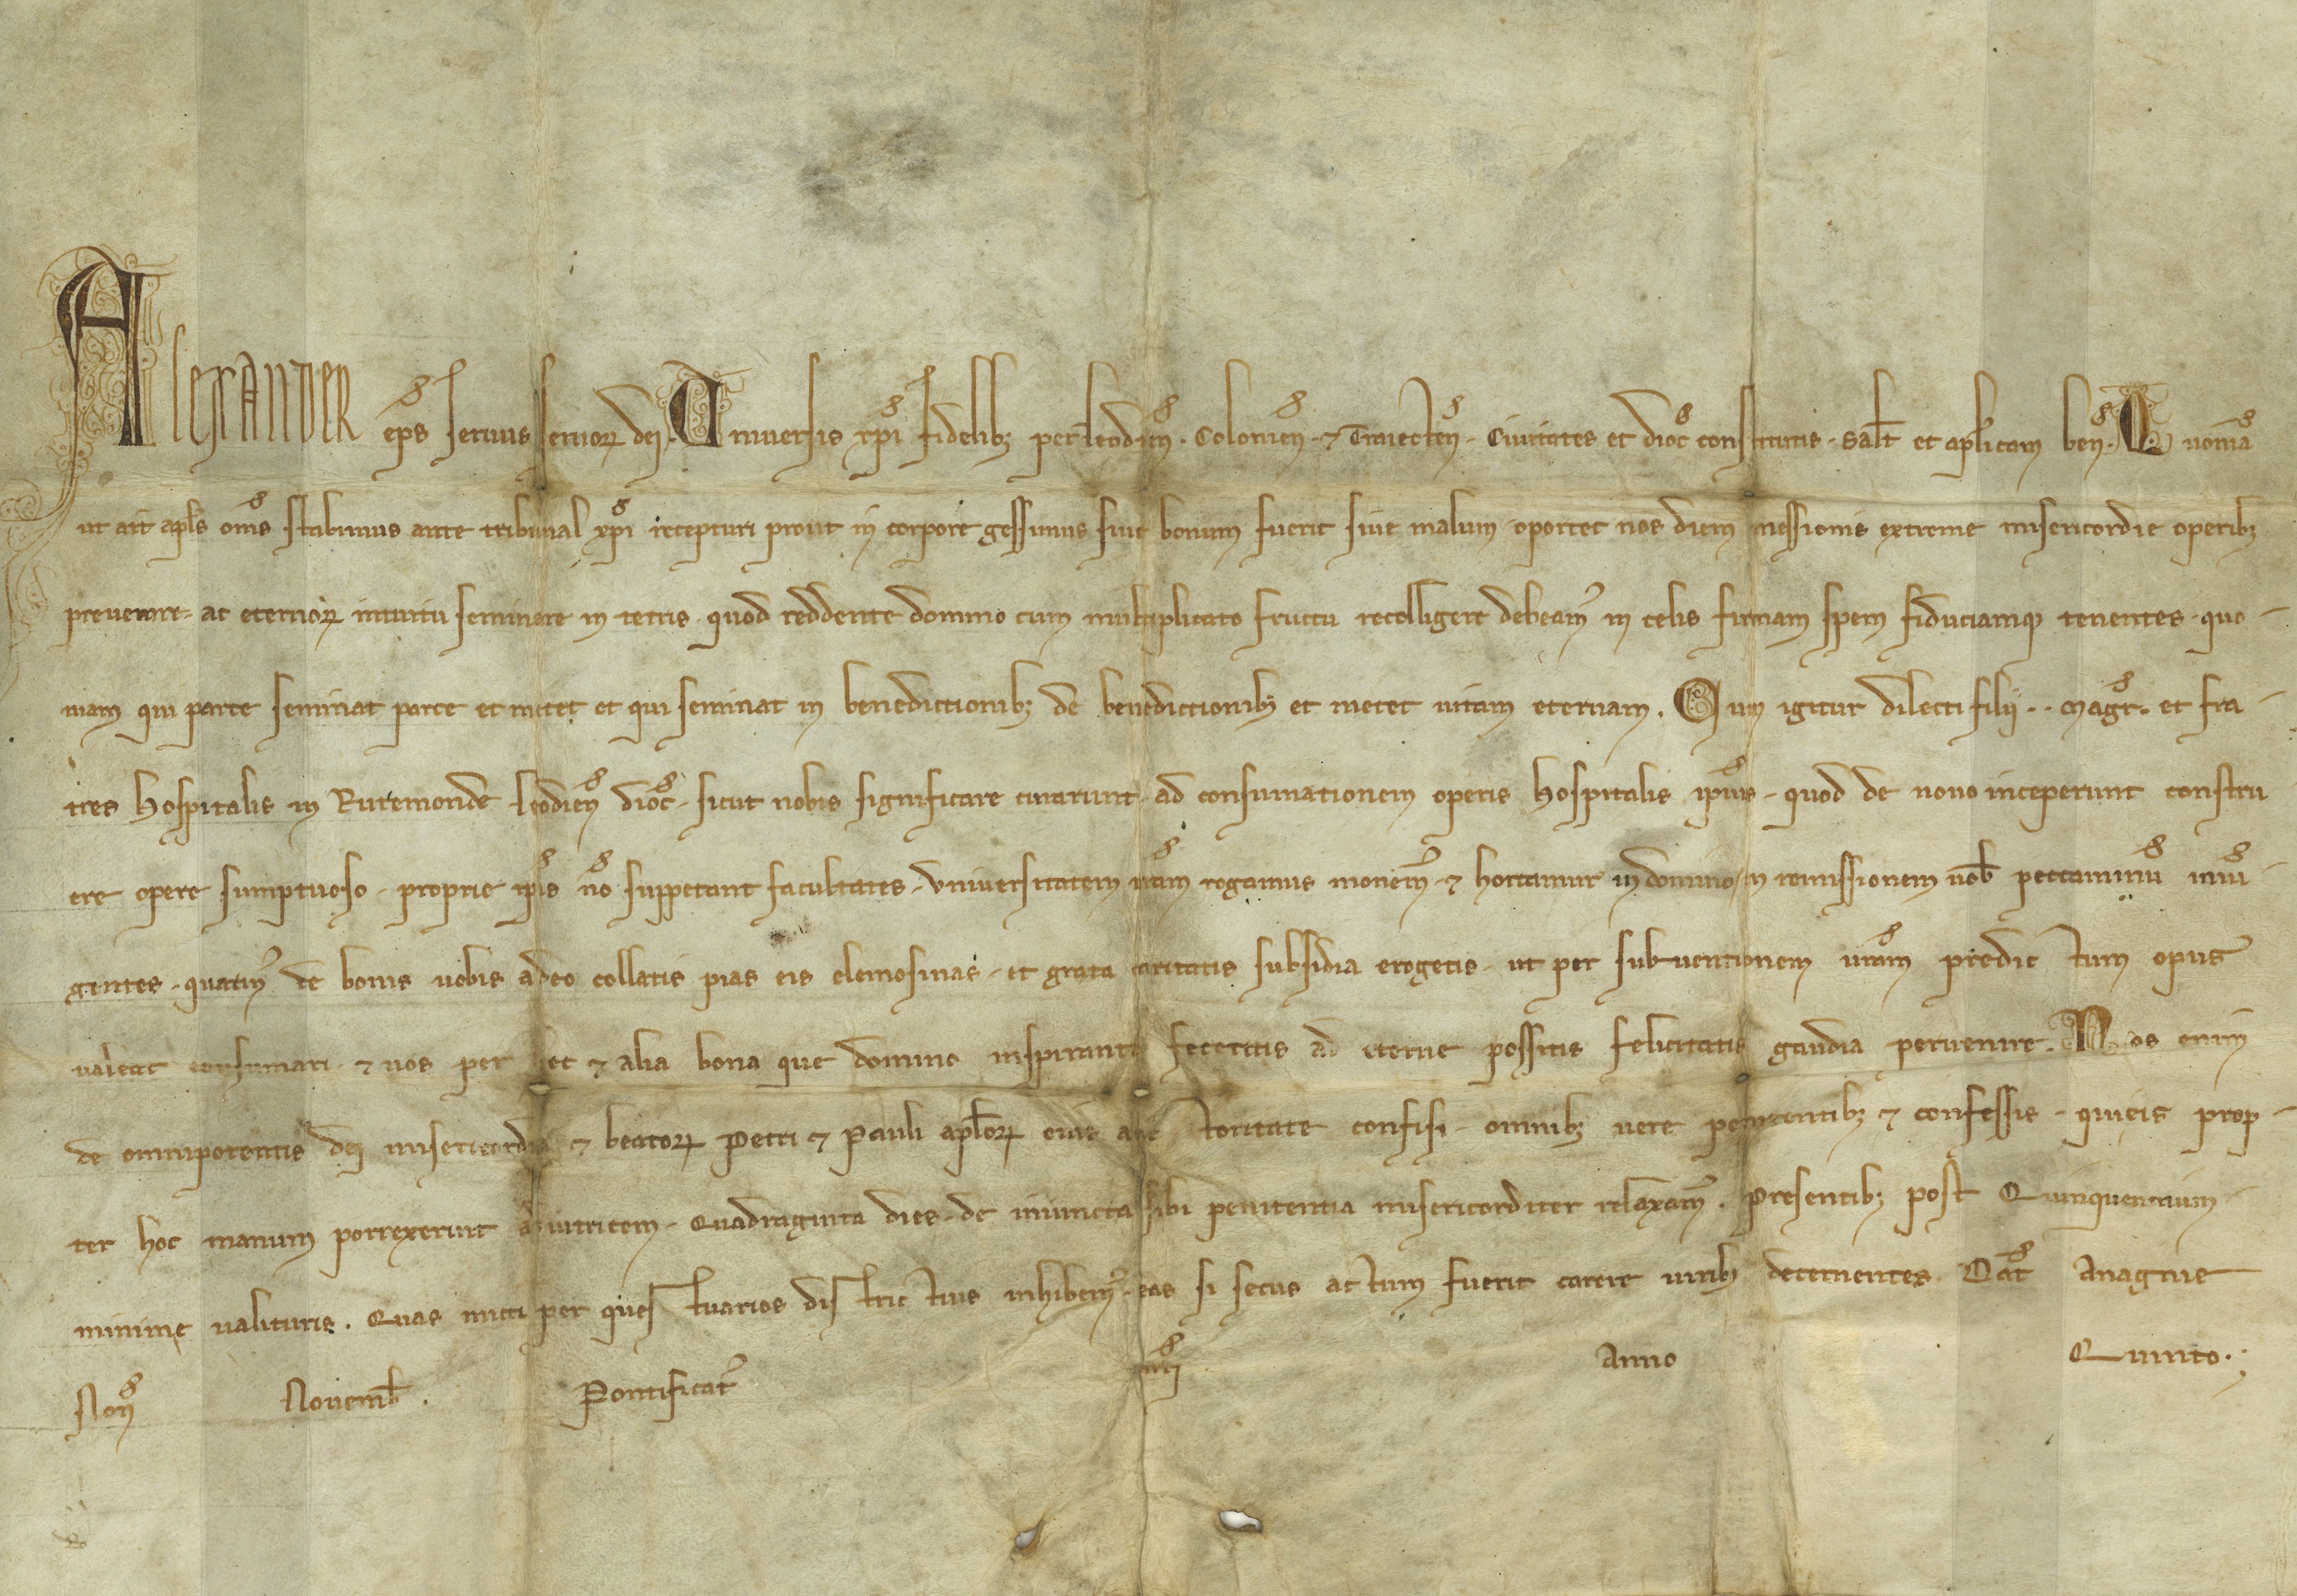 Alexander ep̄s seruus seruoꝝ dei. Uniuersis xp̄i fidelibꝫ per Leodien̄. Colonien̄. ⁊ Traiecten̄. Ciuitates et dioc̄ constitutis. Salt̄ et aplicam ben̄. Quoniā
ut ait apls om̄s stabimus ante tribunal xp̄i recepturi prout in corpore gessimus siue bonum fuerit siue malum oportet nos diem messionis extreme misericordie operibꝫ
preuenire ac eternoꝝ intuitu seminare in terris. quod reddente domino cum multiplicato fructu recolligere debeam᾽ in celis firmam spem fiduciamqꝫ tenentes. quo-
niam qui parce seminat parce et metet et qui seminat in benedictionibꝫ de benedictionibꝫ et metet uitam eternam. Cum igitur dilecti filij .. magr̄. et fra-
tres Hospitalis in Ruremonde Leodien̄ dioc̄. sicut nobis significare curarunt. ad consumationem operis Hospitalis ip̄ius. quod de nouo inceperunt constru
ere opere sumptuoso. proprie ip̄is nō suppetant facultates. Uniuersitatem ur̄am rogamus monem᾽ ⁊ hortamur in domino in remissionem uob̄ peccaminū iniū-
gentes. quatin᾽ de bonis uobis a deo collatis pias eis elemosinas. et grata caritatis subsidia erogetis. ut per subuentionem ur̄am predictum opus
ualeat consumari. ⁊ uos per hec ⁊ alia bona que domino inspirante feceritis ad eterne possitis felicitatis gaudia peruenire. Nos enim
de omnipotentis dei misericordia ⁊ beatoꝝ Petri ⁊ Pauli aplōꝝ eius auctoritate confisi. omnibꝫ uere penitentibꝫ ⁊ confessis. qui eis prop-
ter hoc manum porrexerint adiutricem. Quadraginta dies. de iniuncta sibi penitentia misericorditer relaxam᾽. Presentibꝫ post Quinquennium
minime ualituris. Quas mitti per questuarios districtius inhibem᾽. eas si secus actum fuerit carere uiribꝫ decernentes. Dat̄ Anagnie
Non̄ Nouemb̄. Pontificat᾽ nr̄i Anno Quinto.